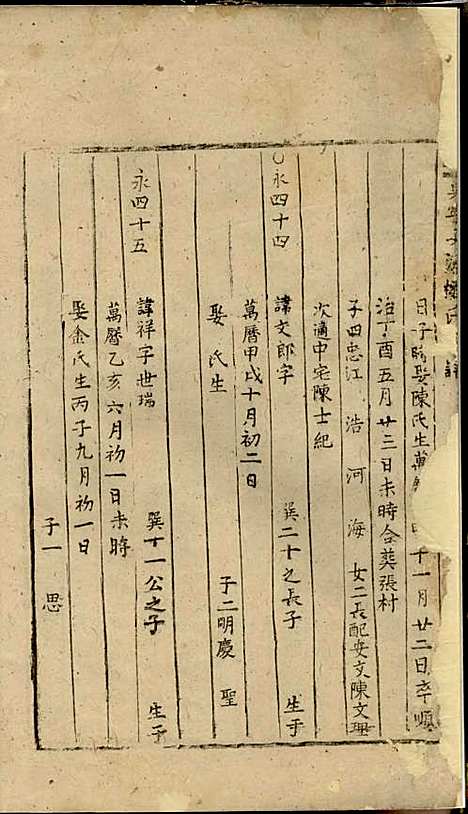 日子時娶陳氏生萬 十一月廿二日卒順
治丁酉五月廿三日未時合葬張村
子四忠江 浩 河 海 女二長配安文陳文理
次適中宅陳士紀
○永四十四 諱文郎字 巽二十之長子 生于
萬曆甲戌十月初二日
娶 氏生 子二明慶 聖
永四十五 諱祥字世瑞 巽十一公之子 生于
萬曆乙亥六月初一日未時
娶金氏生丙子九月初一日
子一 思